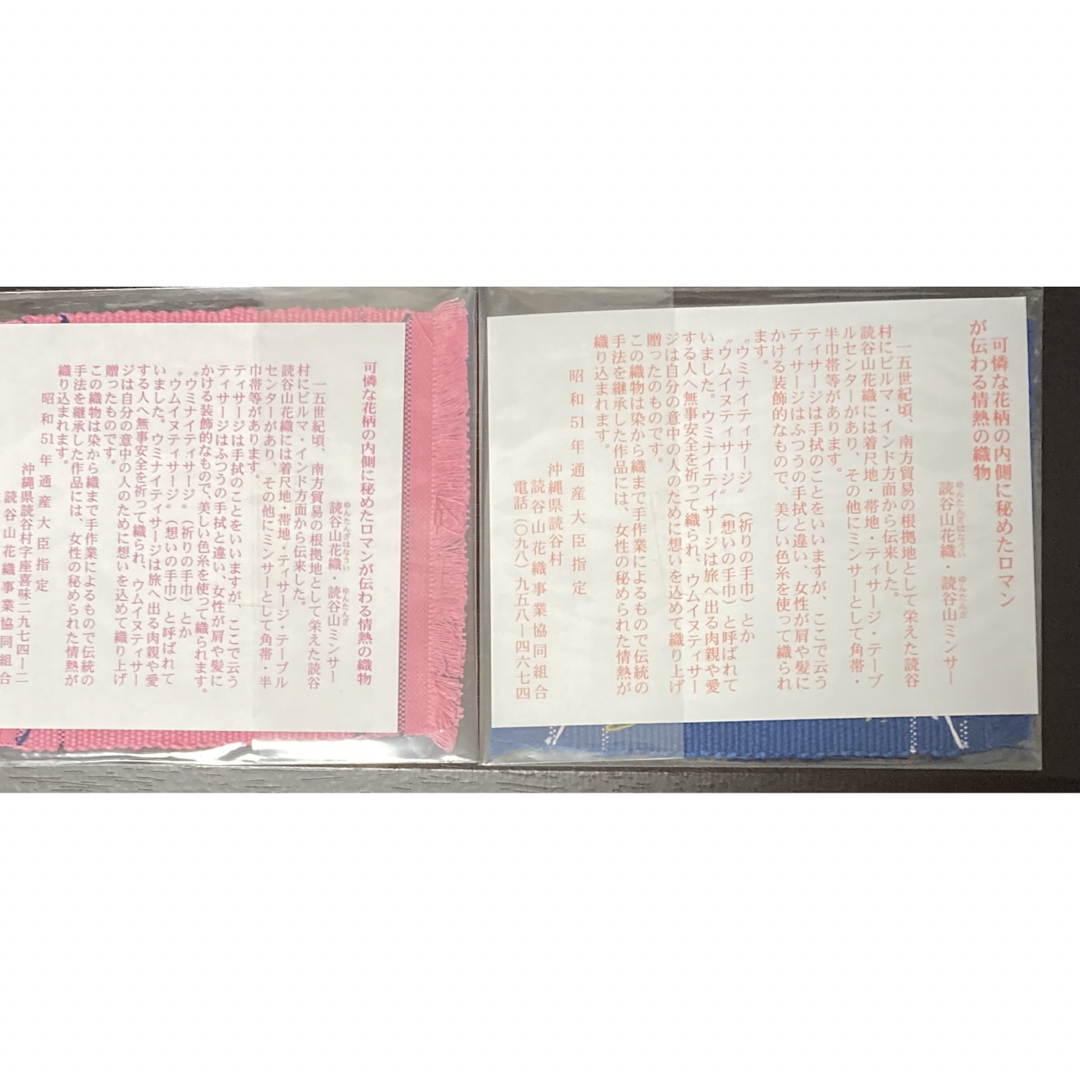 可憐な花柄の内側に秘めたロマン
が伝わる情熱の織物
ゆんたんざはなうい　ゆんたんざ
読谷山花織・読谷山ミンサー
一五世紀頃、南方貿易の根拠地として栄えた読谷
村にビルマ・インド方面から伝来した。
読谷山花織には着尺地・帯地・ティサージ・テーブ
ルセンターがあり、その他にミンサーとして角帯・
半巾帯等があります。
ティサージは手拭のことをいいますが、ここで云う
ティサージはふつうの手拭と違い、女性が肩や髪に
かける装飾的なもので、美しい色糸を使って織られ
ます。
〝ウミナイティサージ〟（祈りの手巾）とか
〝ウムイヌティサージ〟（想いの手巾）と呼ばれて
いました。ウミナイティサージは旅へ出る肉親や愛
する人へ無事安全を祈って織られ、ウムイヌティサー
ジは自分の意中の人のために想いを込めて織り上げ
贈ったのものです。
この織物は染から織まで手作業によるもので伝統の
手法を継承した作品には、女性の秘められた情熱が
織り込まれます。
昭和51年通産大臣指定
沖縄県読谷村
読谷山花織事業協同組合
電話（〇九八）九五八ー四六七四
可憐な花柄の内側に秘めたロマンが伝わる情熱の織物
ゆんたんざはなうい　ゆんたんざ
読谷山花織・読谷山ミンサー
一五世紀頃、南方貿易の根拠地として栄えた読谷
村にビルマ・インド方面から伝来した。
読谷山花織には着尺地・帯地・ティサージ・テーブル
センターがあり、その他にミンサーとして角帯・半
巾帯等があります。
ティサージは手拭のことをいいますが、ここで云う
ティサージはふつうの手拭と違い、女性が肩や髪に
かける装飾的なもので、美しい色糸を使って織られます。
〝ウミナイティサージ〟（祈りの手巾）とか
〝ウムイヌティサージ〟（想いの手巾）と呼ばれて
いました。ウミナイティサージは旅へ出る肉親や愛
する人へ無事安全を祈って織られ、ウムイヌティサー
ジは自分の意中の人のために想いを込めて織り上げ
贈ったものです。
この織物は染から織まで手作業によるもので伝統の
手法を継承した作品には、女性の秘められた情熱が
織り込まれます。
昭和51年通産大臣指定
沖縄県読谷村字座喜味二九七四ー二
読谷山花織事業協同組合